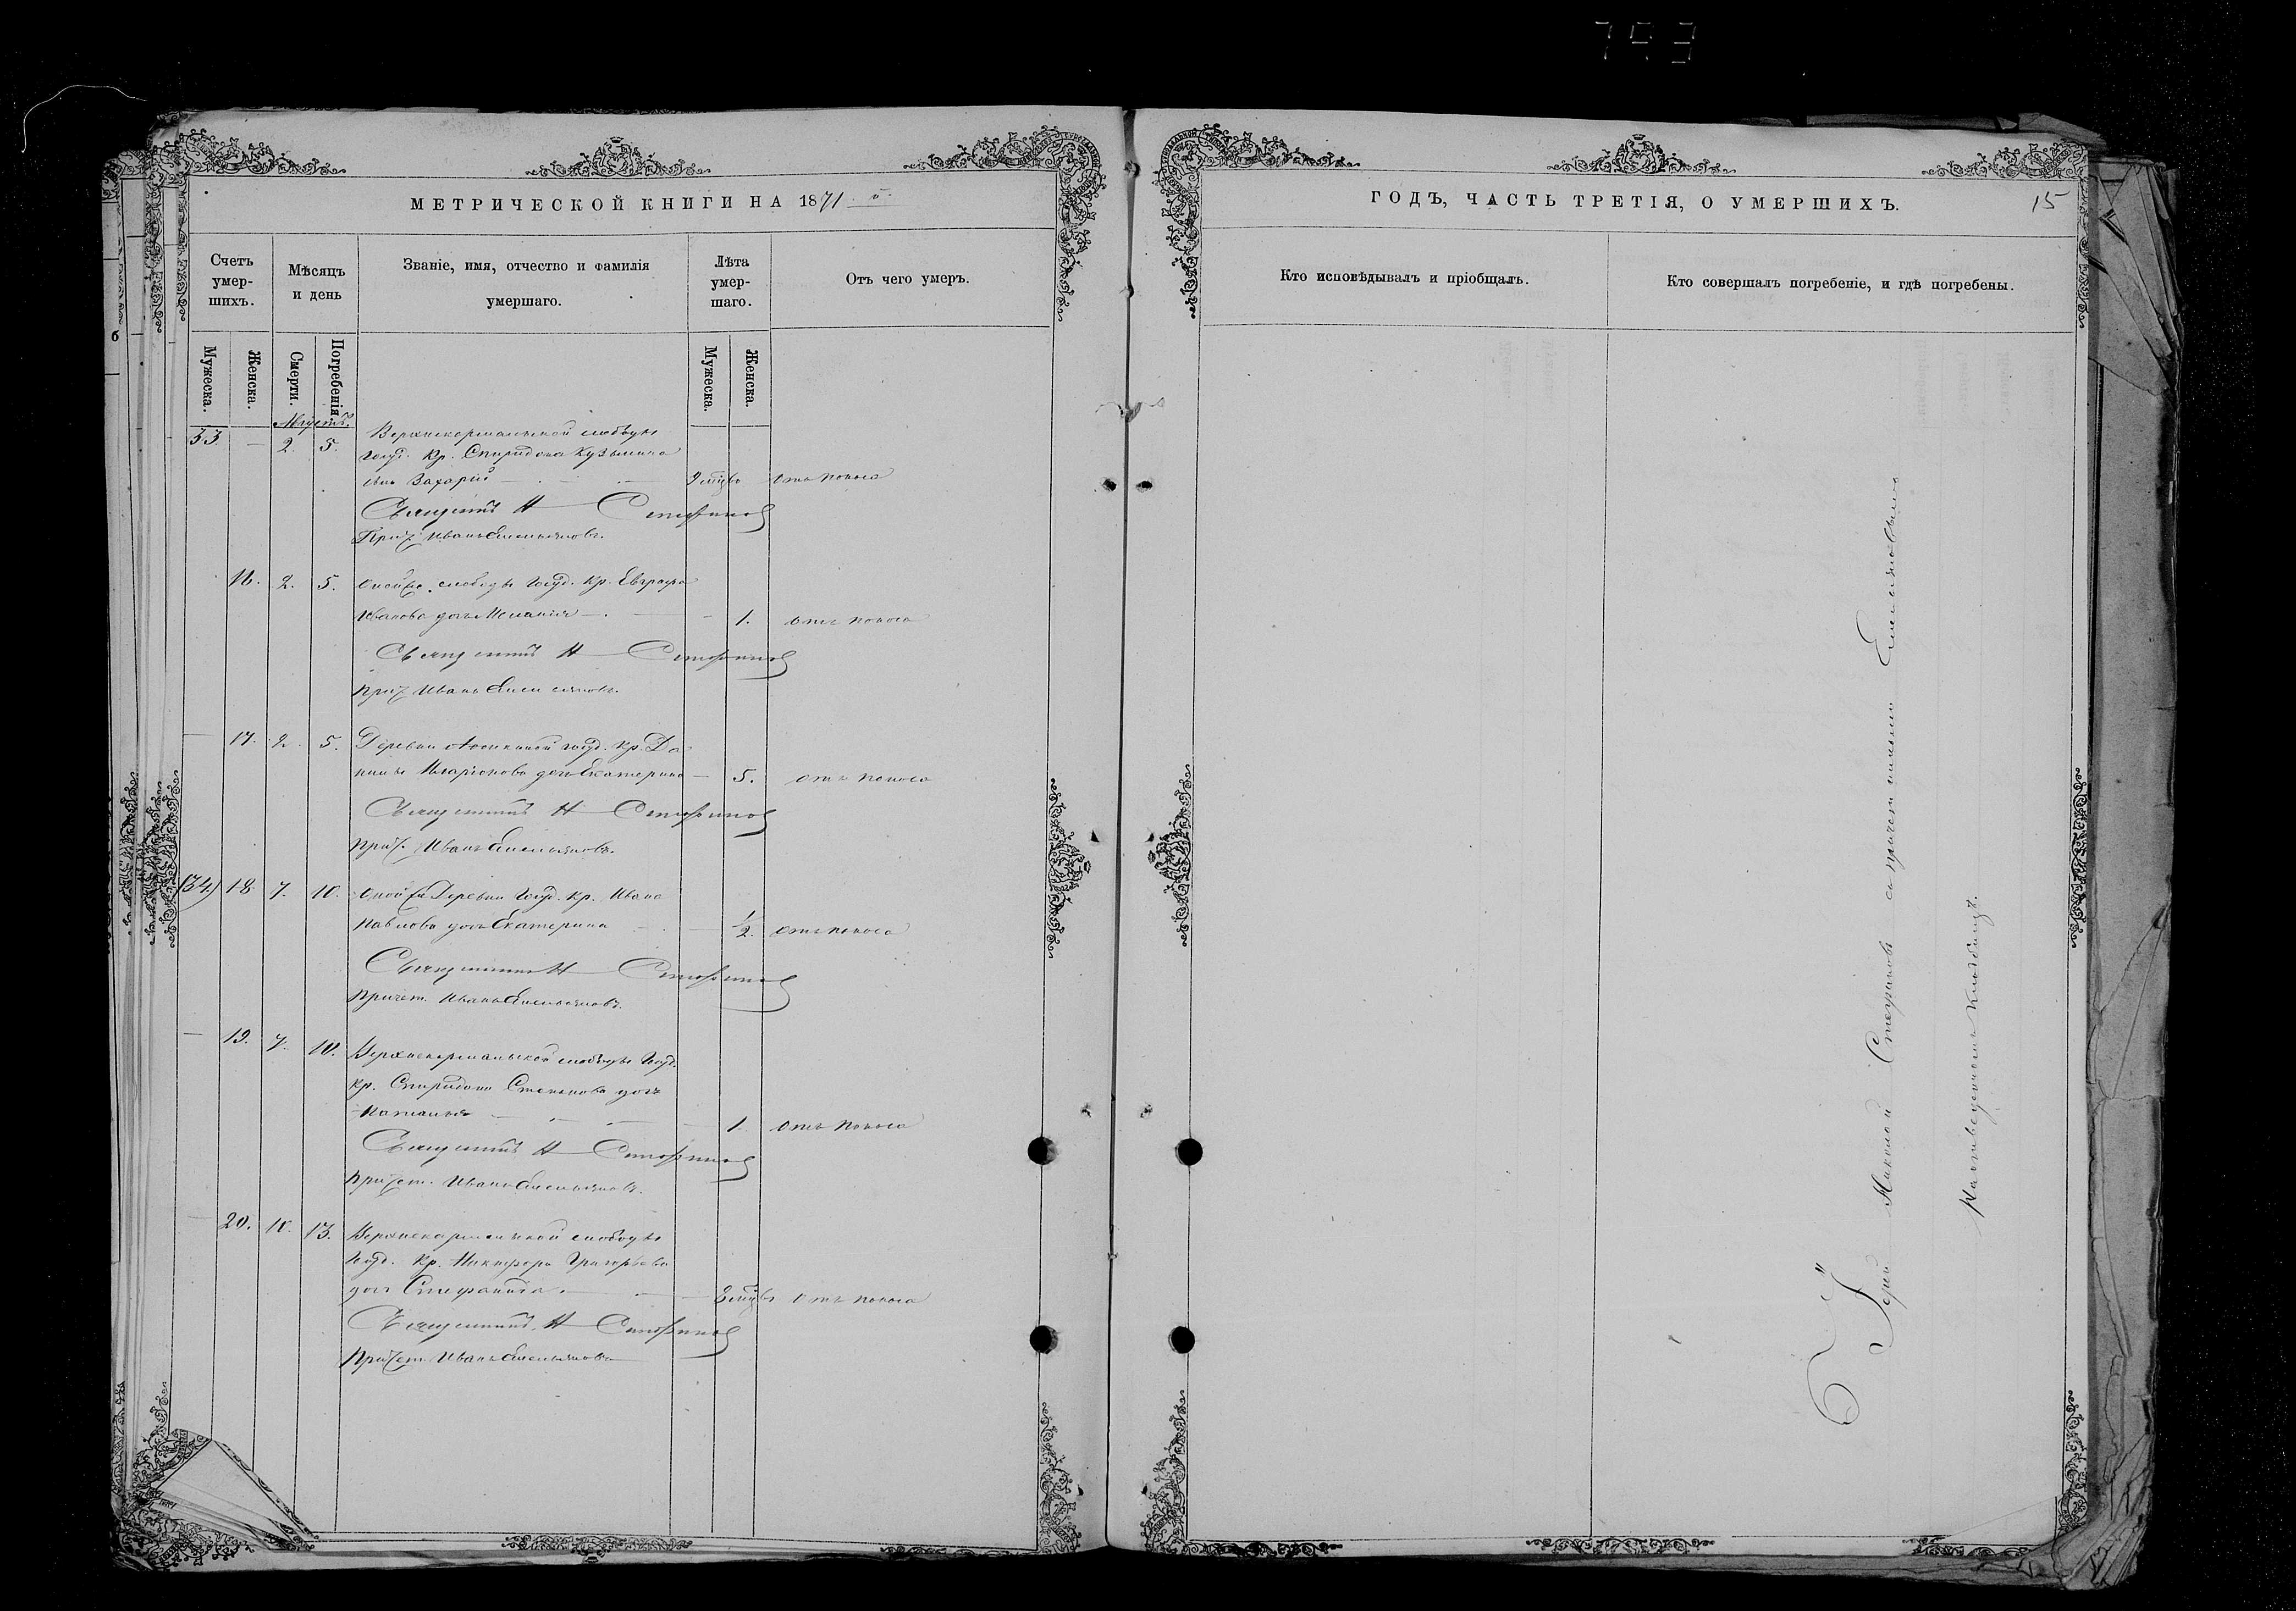 753
МЕТРИЧЕСКОЙ КНИГИ НА 1871
Счетъ умер-шихъ.
Мѣсяцъ и день
Званіе, имя, отчество и фамилія умершаго.
Лѣта умер-шаго.
Отъ чего умеръ.
Мужеска.
Женска.
Смерти.
Погребенія.
Мужеска.
Женска.
Августъ.
33 — 2. 5.
госуд. кр. Спиридона Кузьмина
сынъ Захарій — отъ поноса
Священникъ Н
Прич. Иванъ Емельяновъ.
2. 5. слободы госуд. кр. Евграфа
Иванова дочь 1. отъ поноса
Священникъ Н
Прич. Иванъ Емельяновъ.
— 17. 2. 5. Деревни госуд. кр. Да
нилы Иларіонова дочь Екатерина — 5. отъ поноса
Священникъ Н
Прич. Иванъ Емельяновъ.
(34) 18. 7. 10. Оной же деревни госуд. кр. Ивана
Павлова дочь Екатерина 1/2. отъ поноса
Священникъ Н
Причет. Иванъ Емельяновъ.
— 19. 7. 10. слободы госуд.
кр. Спиридона Степанова дочь
Наталья — 1. отъ поноса
Священникъ Н
Причет. Иванъ Емельяновъ.
— 20. 10. 13. слободы
госуд. кр. Никифора Григорьева
дочь Стефанида — отъ поноса
Священникъ Н
Причет. Иванъ Емельяновъ
ГОДЪ, ЧАСТЬ ТРЕТІЯ, О УМЕРШИХЪ.
15
Кто исповѣдывалъ и пріобщалъ.
Кто совершалъ погребеніе, и гдѣ погребены.
Іерей Николай съ причетникомъ Емельяновымъ
на кладбищѣ.
6